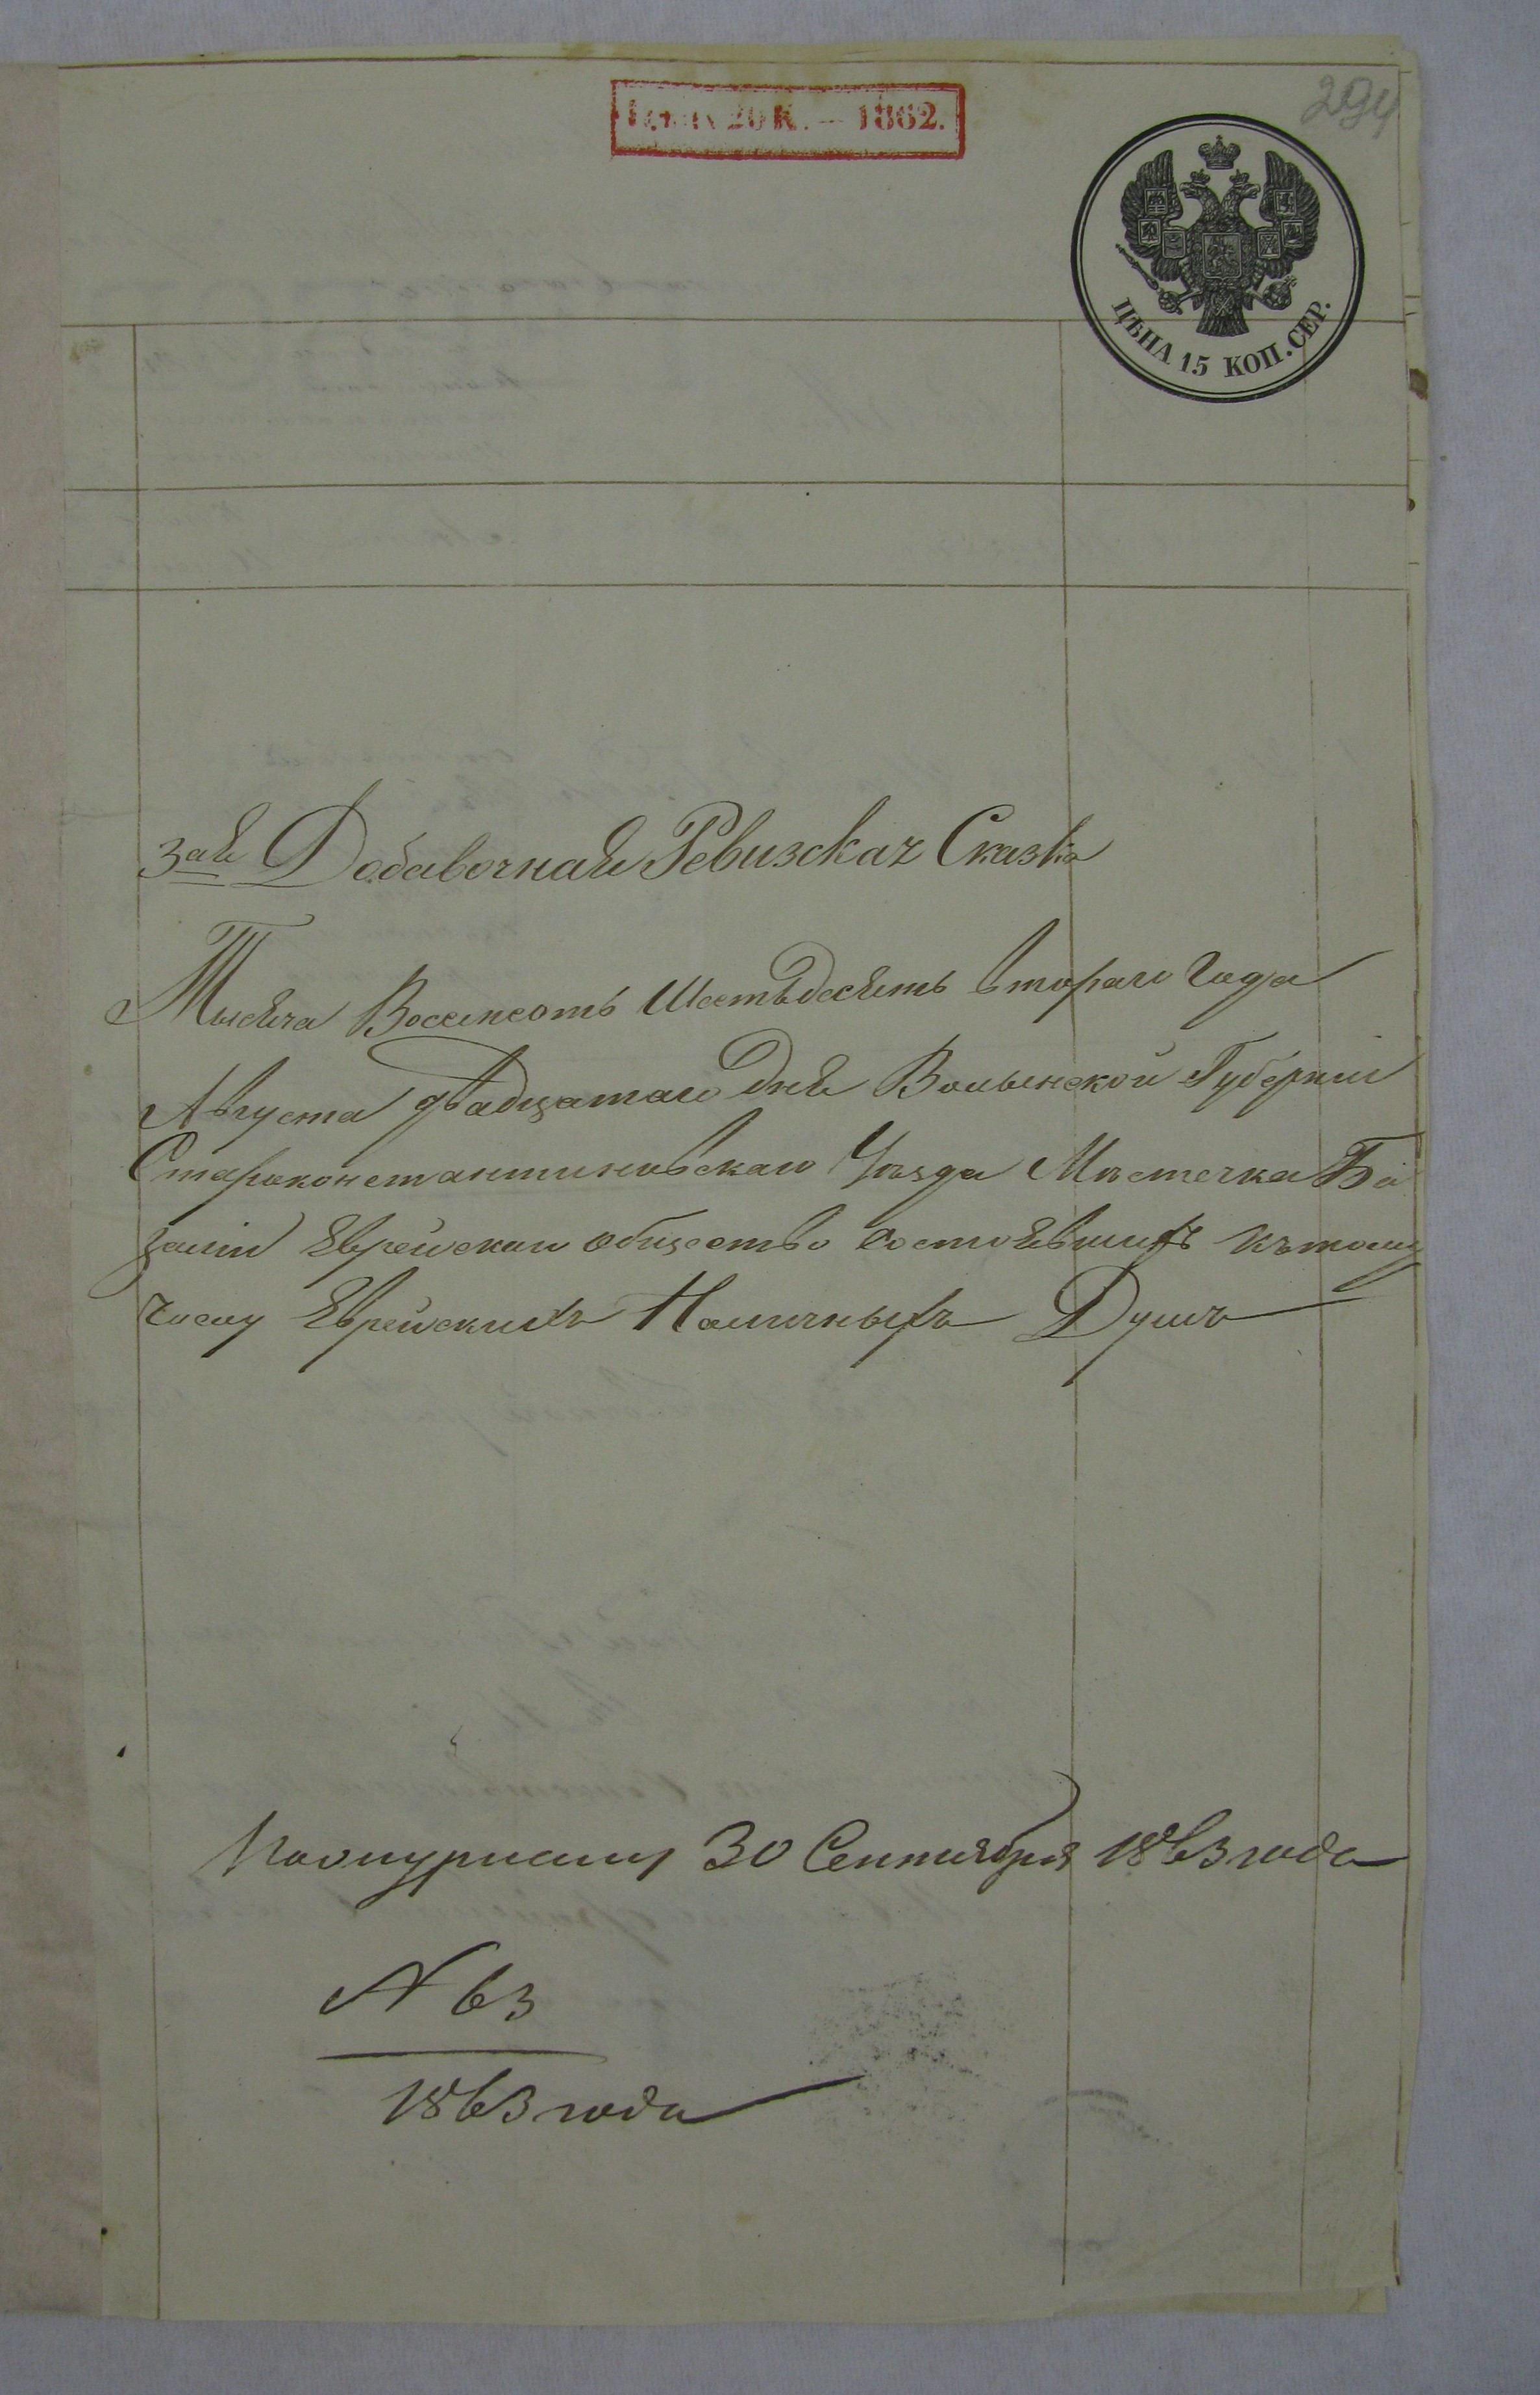 Цѣна 20 К. — 1862.
294
ЦѢНА 15 КОП. СЕР.
3ая Добавочная Ревизская Сказка
Тысяча Восемсотъ Шестьдесять втораго Года
Августа двадцатаго дня Волынской Губерніи
Староконстантиновскаго Уѣзда Мѣстечка Ба
заліи Еврейскаго общество состоявших къ тому
числу Еврейскихъ Наличныхъ Душъ
Получена 30 Сентября 1863 года
N 63
1863 года